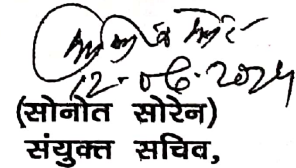 12.06.2024
(सोनोत सोरेन)
संयुक्त सचिव,